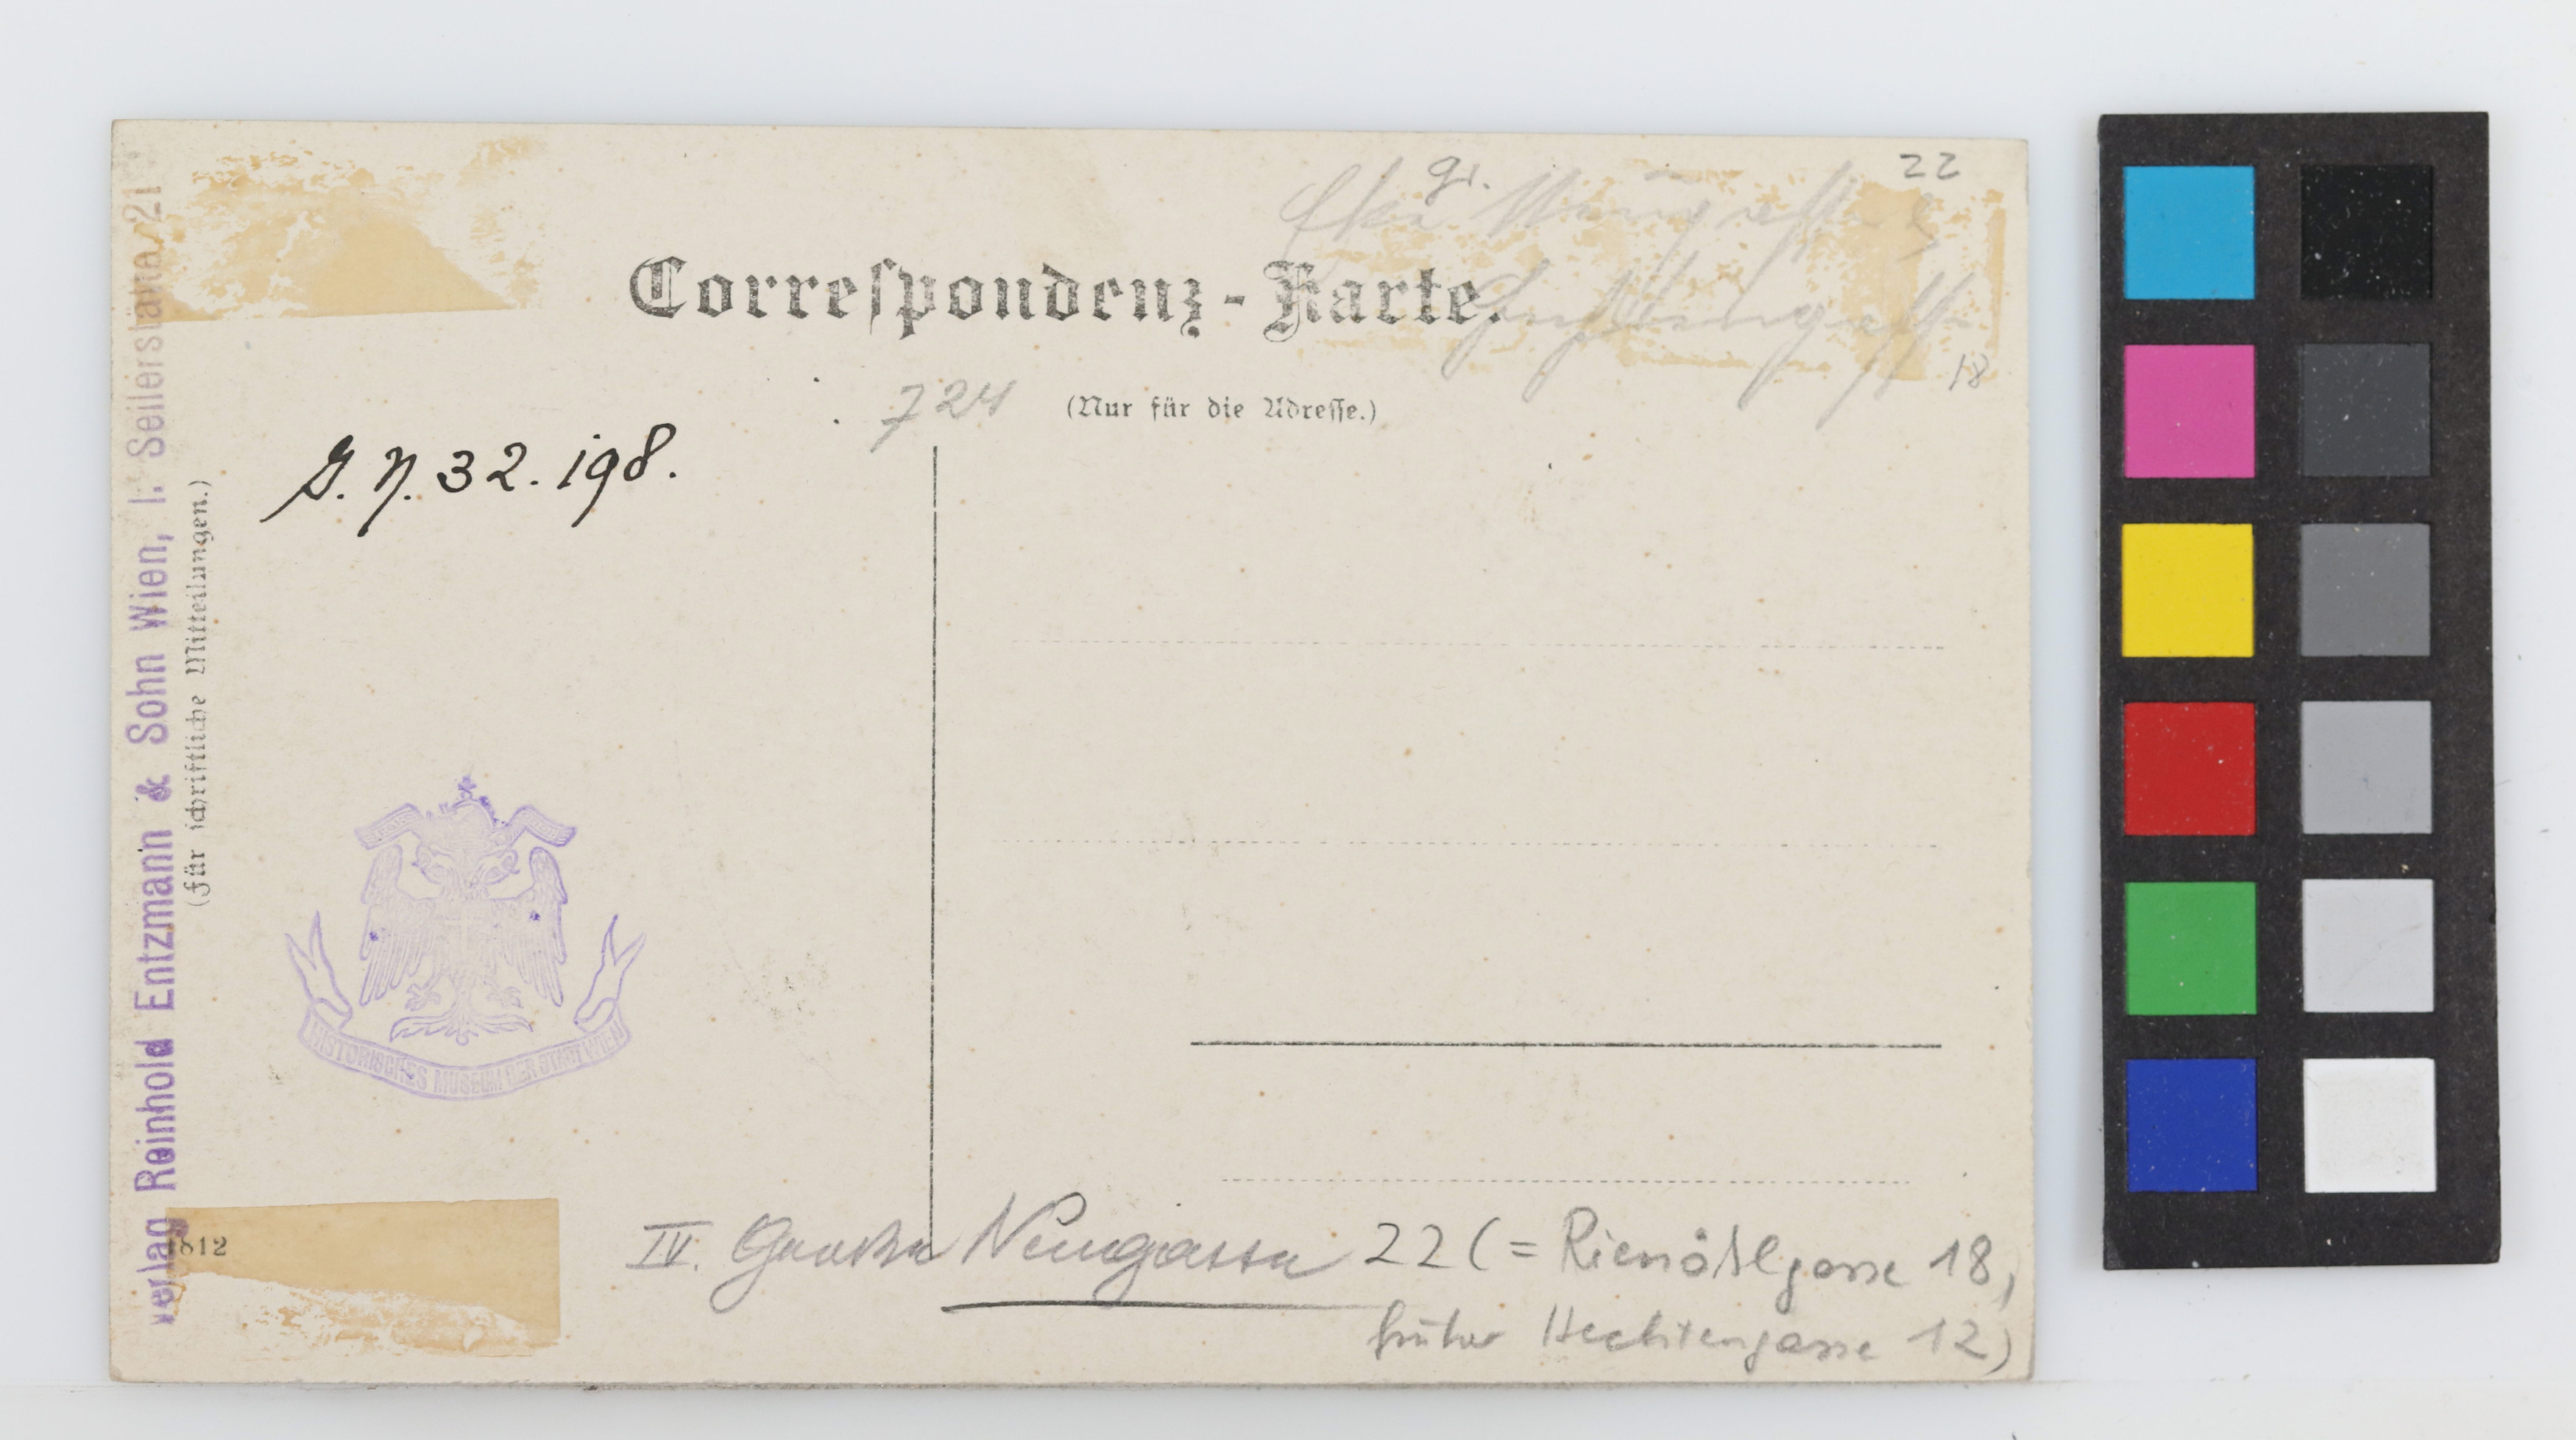 gr. 22
Ecke Neugasse
Correspondenz-Karte.
Hechtengasse
18
724 (Nur für die Adresse.)
J. N. 32.198.
Verlag Reinhold Entzmann & Sohn Wien, I. Seilerstätte 21
(Für schriftliche Mitteilungen.)
HISTORISCHES MUSEUM DER STADT WIEN
1812
IV. Grosse Neugasse 22 (= Rienößlgasse 18,
früher Hechtengasse 12)